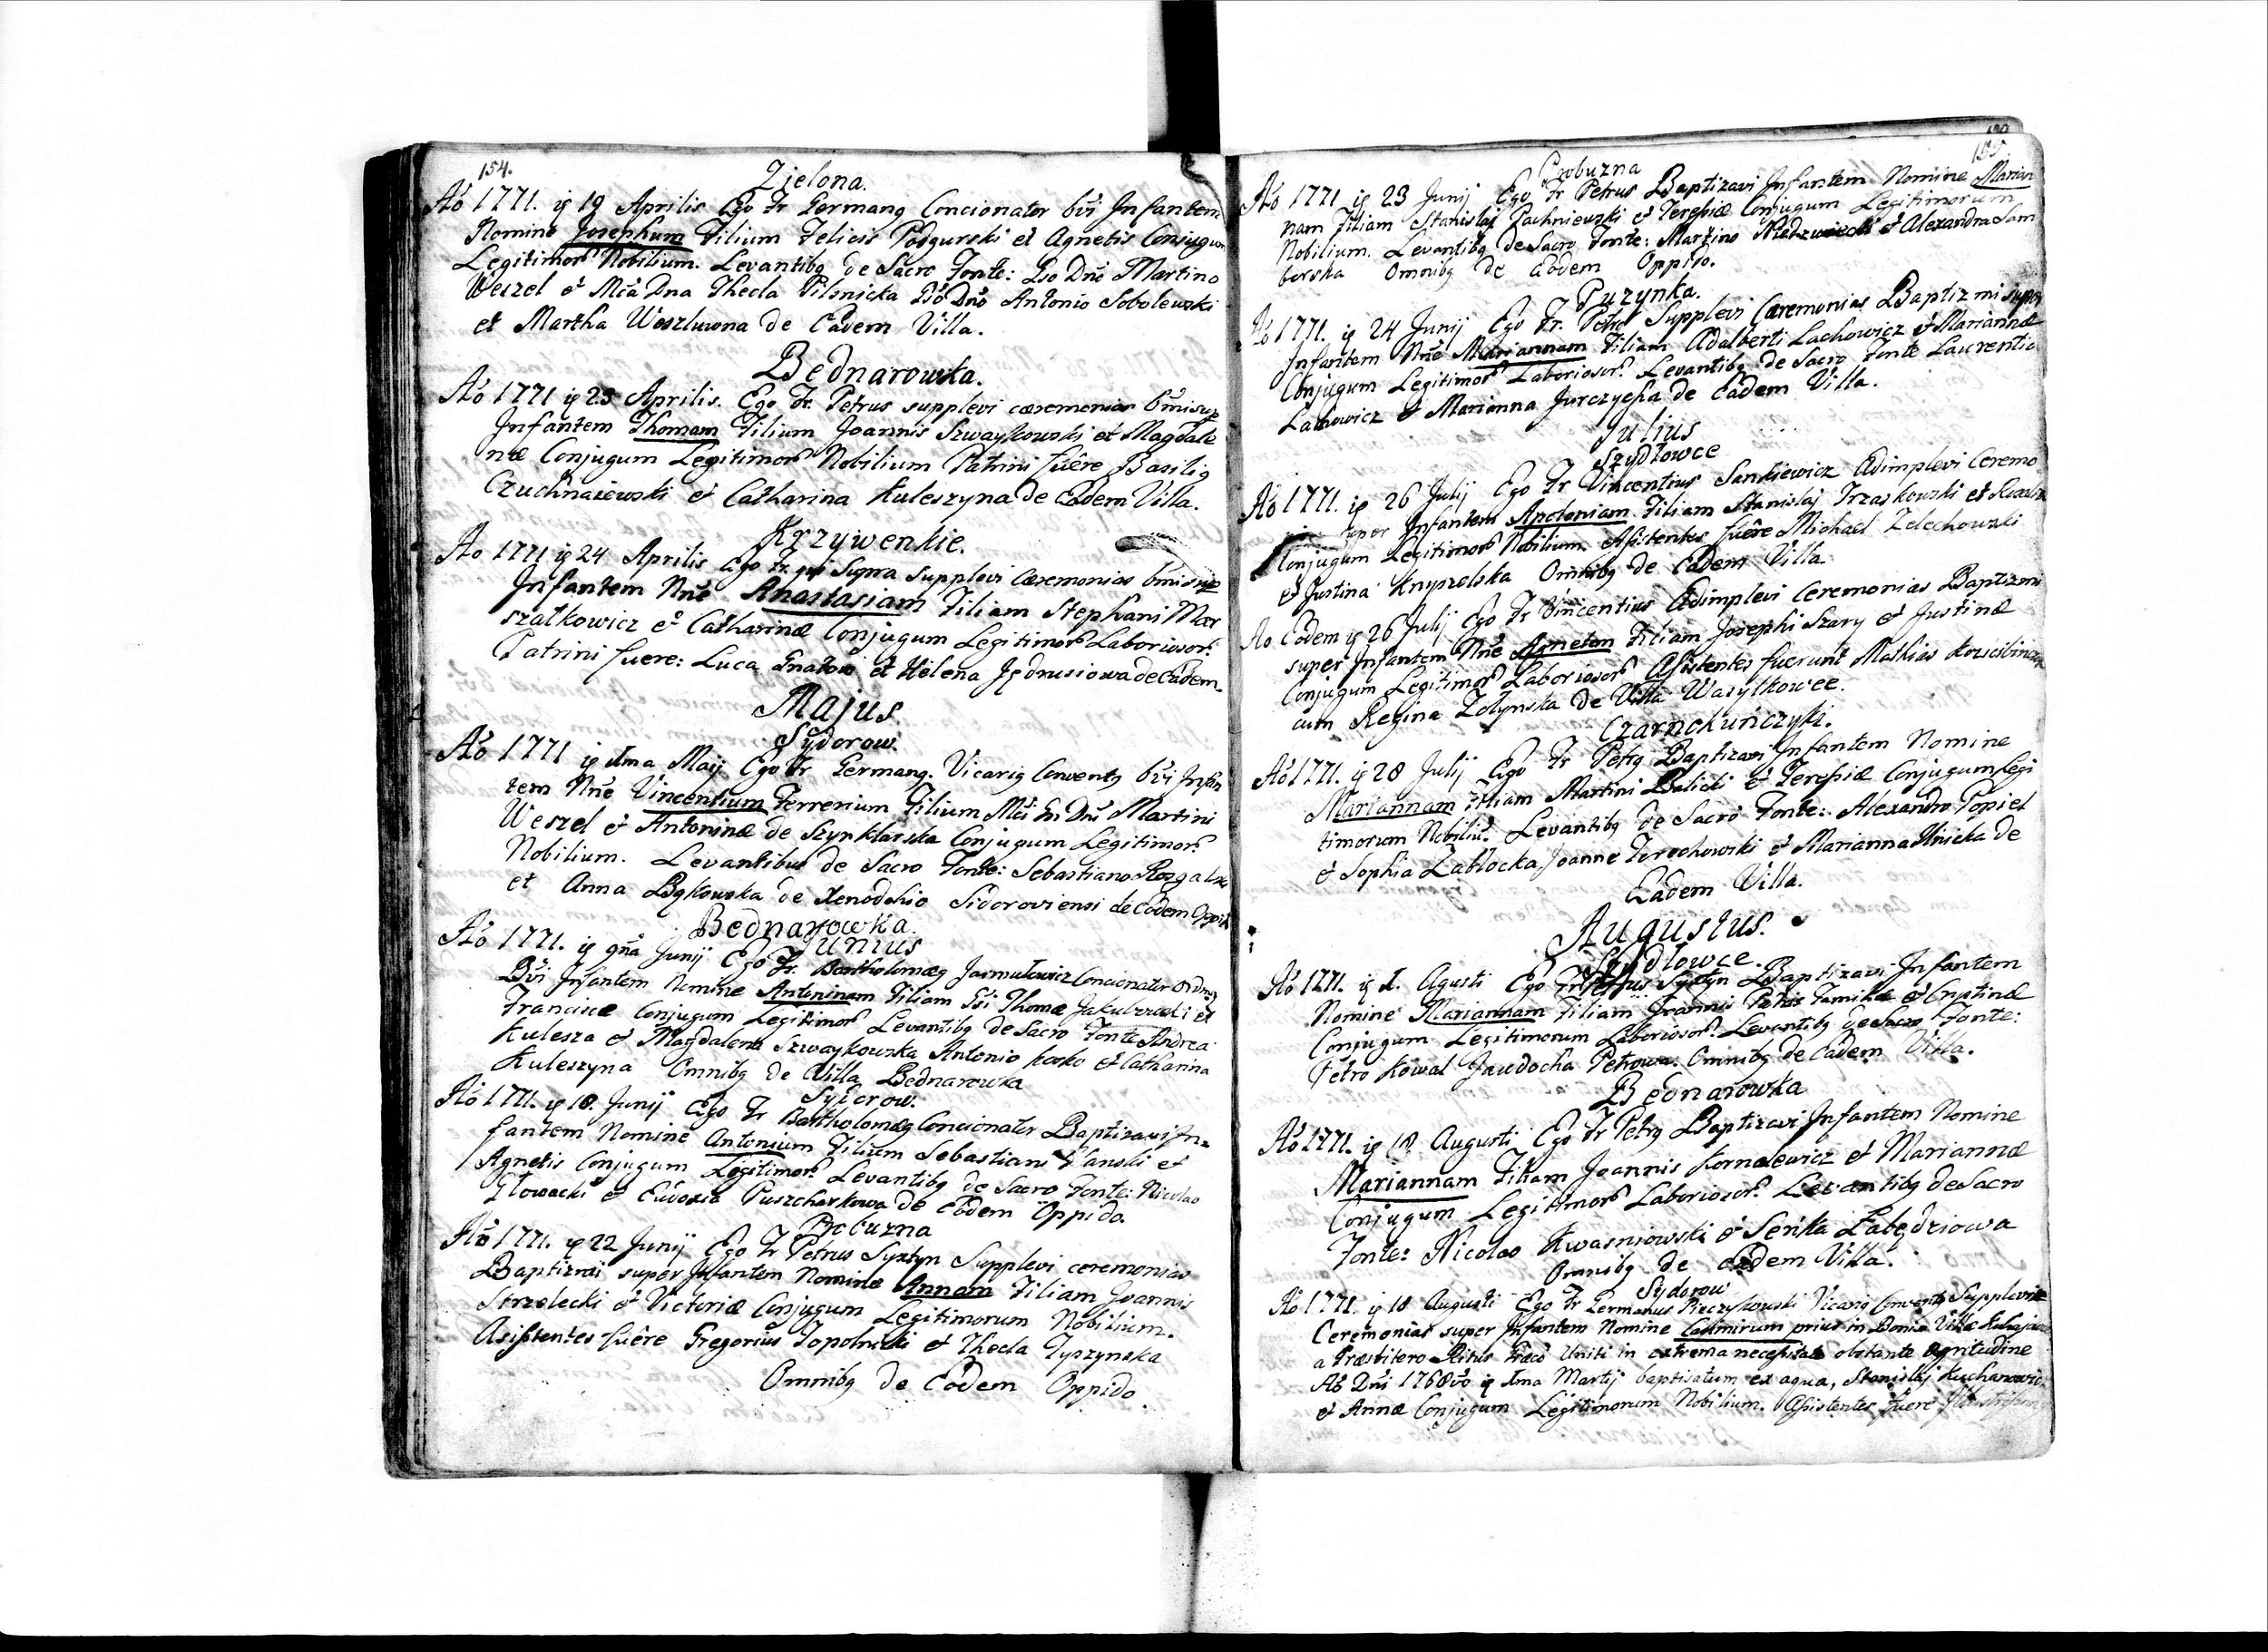 154.
Zielona.
Ao 1771. ig 19 Aprilis Ego Fr Germang Concionator bvi Infantem
Nomine Josephum Filium Felicis Podgurski et Agnetis Conjugum
Legitimor Nobilium. Levantibg de Sacro Fonte: Gso Dno Martino
Weszel et Mca Dna Thecla Pilsnicka Gso Dno Antonio Sobolewski
et Martha Weszluwna de Eadem Villa.
Bednarowka.
Ao 1771 ig 23 Aprilis. Ego Fr. Petrus supplevi cæremonias bmi sup
Infantem Thomam Filium Joannis Szwaykowski et Magdale
næ Conjugum Legitimor Nobilium Patrini fuêre Basilig
Czuchnaiewski et Catharina Kuleszyna de Eadem Villa.
Krzywenkie.
Ao 1771 ig 24 Aprilis Ego Fr. qui Supra supplevi cæremonias bmi sup
Infantem Nne Anastasiam Filiam Stephani Mar
szalkowicz et Catharinæ Conjugum Legitimor Laboriosor
Patrini fuere: Luca Gnatow et Helena Jędrusiowa de Eadem.
Majus.
Sydorow.
Ao 1771 ig 1ma Maij Ego Fr Germang. Vicarig Conventg bvi Infan
tem Nne Vincentium Ferrerium Filium Mci Gsi Dni Martini
Weszel et Antoninæ de Szynklarska Conjugum Legitimor
Nobilium. Levantibus de Sacro Fonte: Sebastiano
et Anna Bykowska de Xenodohio Sidoroviensi de Eodem Oppido
Bednarowka.
Junius
Ao 1771. ig 9na Junij Ego Fr. Bartholomæg Jarmulowicz Concionator Ordng
Bvi Infantem Nomine Antoninam Filiam Gsi Thomæ Jakubowski et
Franciscæ Conjugum Legitimor Levantibg de Sacro Fonte Andrea
Kulesza et Magdalena Szwaykowska Antonio Kosko et Catharina
Kuleszyna Omnibg de Villa Bednarowka
Sydorow.
Ao 1771. ig 18. Junij Ego Fr Bartholomæg Concionator Baptisavi In=
fantem Nomine Antonium Filium Sebastiani Ulanski et
Agnetis Conjugum Legitimor Levantibg de Sacro Fonte: Nicolao
Głowacki et Eudoxia Puszcharkowa de Eodem Oppido.
Probuzna
Ao 1771. ig 22 Junij Ego Fr Petrus Syxtyn Supplevi ceremonias
Baptizmi super Infantem Nomine Annam Filiam Joannis
Strzelecki et Victoriæ Conjugum Legitimorum Nobilium.
Asistentes fuêre Gregorius Topolnicki et Thecla Tyszynska
Omnibg de Eodem Oppido.
155.
Probuzna
Ao 1771 ig 23 Junij Ego Fr Petrus Baptizavi Infantem Nomine Marian
nam Filiam Stanislaj Pachniewski et Teresiæ Conjugum Legitimorum
Nobilium. Levantibg de Sacro Fonte: Martino Niedzwiecki et Alexandra Sam
borska Omnibg de Eodem Oppido.
Puzynka.
Ao 1771. ig 24 Junij Ego Fr. Petrg Supplevi Cæremonias Baptizmi super
Infantem Nne Mariannam Filiam Adalberti Lachowicz et Mariannæ
Conjugum Legitimor Laboriosor. Levantibg de Sacro Fonte Laurentio
Lachowicz et Marianna Jurczycha de Eadem Villa.
Julius
Szydłowce
Ao 1771. ig 26 Julij Ego Fr Vincentius Sankiewicz Adimplevi Ceremo
nias super Infantem Apoloniam Filiam Stanislaj Trzaskowski et
Conjugum Legitimor Nobilium. Asistentes fuêre Michael Zelechowski
et Justina Knyszelska Omnibg de Eadem Villa.
Ao Eodem ig 26 Julij Ego Fr Vincentius Adimplevi Ceremonias Baptizmi
super Infantem Nne Agnetem Filiam Josephi Szary et Justinæ
Conjugum Legitimor Laboriosor Asistentes fuerunt Mathias
cum Regina Zołynska de Villa Wasylkowce.
Czarnokunczyki.
Ao 1771. ig 28 Julij Ego Fr Petrg Baptizavi Infantem Nomine
Mariannam Filiam Martini Balicki et Teressiæ Conjugum Legi
timorum Nobiliu. Levantibg de Sacro Fonte: Alexandro Popiel
et Sophia Zabłocka, Joanne Terechowski et Marianna Ilnicka de
Eadem Villa.
Augustus.
Szydłowce.
Ao 1771. ig 1. Agusti Ego Fr Petrus Syxtyn Baptizavi Infantem
Nomine Mariannam Filiam Joannis Petras Famikæ et Cristinæ
Conjugum Legitimorum Laboriosor. Levantibg de Sacro Fonte:
Petro Kowal Jawdocha Petrowa. Omnibg de Eadem Villa.
Bednarowka
Ao 1771. ig 18 Augusti Ego Fr Petrg Baptizavi Infantem Nomine
Mariannam Filiam Joannis Kornalewicz et Mariannæ
Conjugum Legitimor Laboriosor. Levantibg de Sacro
Fonte: Nicolao Kwasniowski et Senka Łabędziowa
Omnibg de Eadem Villa.
Sydorow
Ao 1771. ig 18 Augusti Ego Fr Germanus Pieczykowski Vicarig Conventg Supplevi
Ceremonias super Infantem Nomine Casimirum prius in Bonis Villæ
a Præsbitero Ritus Græco Uniti in extrema necessitate obstante ægritudine
Ao Dni 1768vo ig 1ma Martij baptisatum ex aqua, Stanislaj Kucharowic
et Annæ Conjugum Legitimorum Nobilium. Asistentes fuere